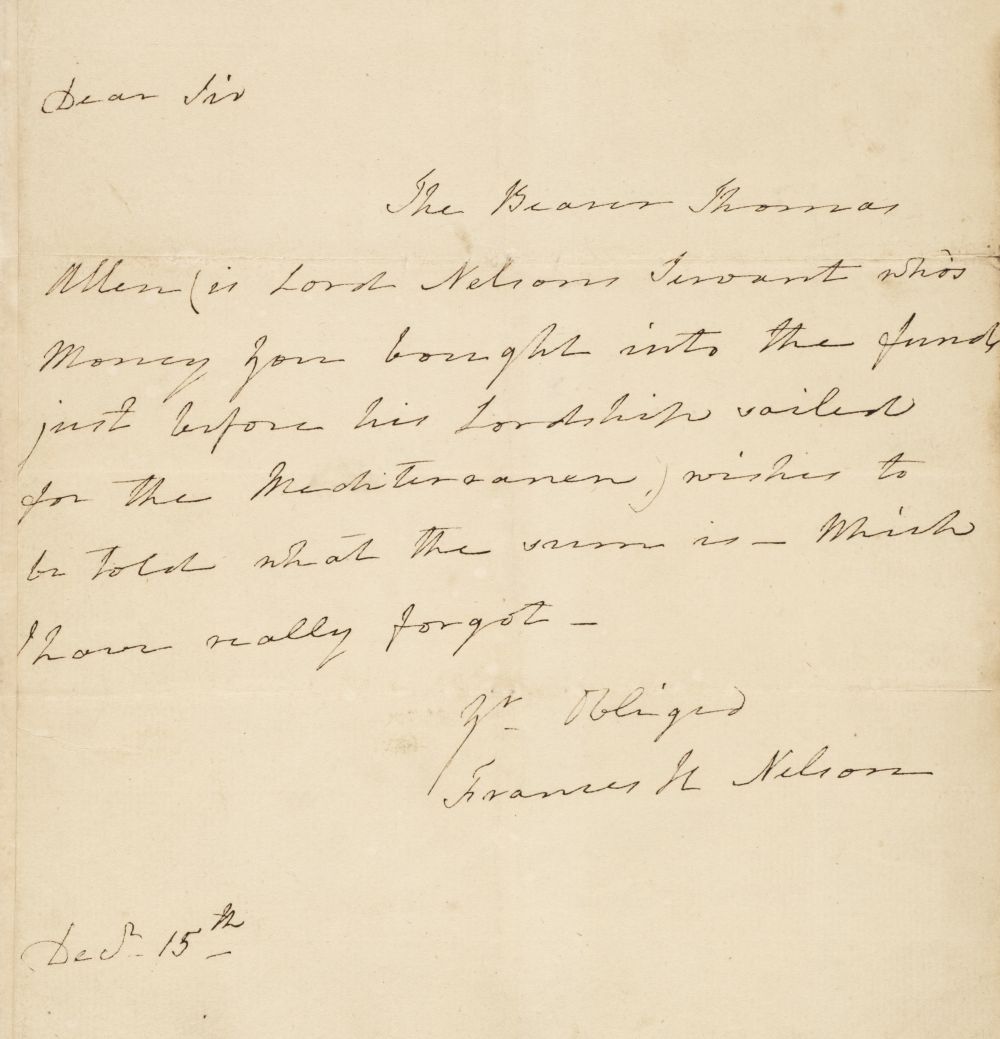 Dear Sir
The Bearer Thomas
Allen (is Lord Nelsons Servant who's
Money you bought into the funds
just before his Lordship sailed
for the Mediterranen,) wishes to
be told what the sum is - Which
I have really forgot -
Yr Obliged
Frances H Nelson
Decr. 15th